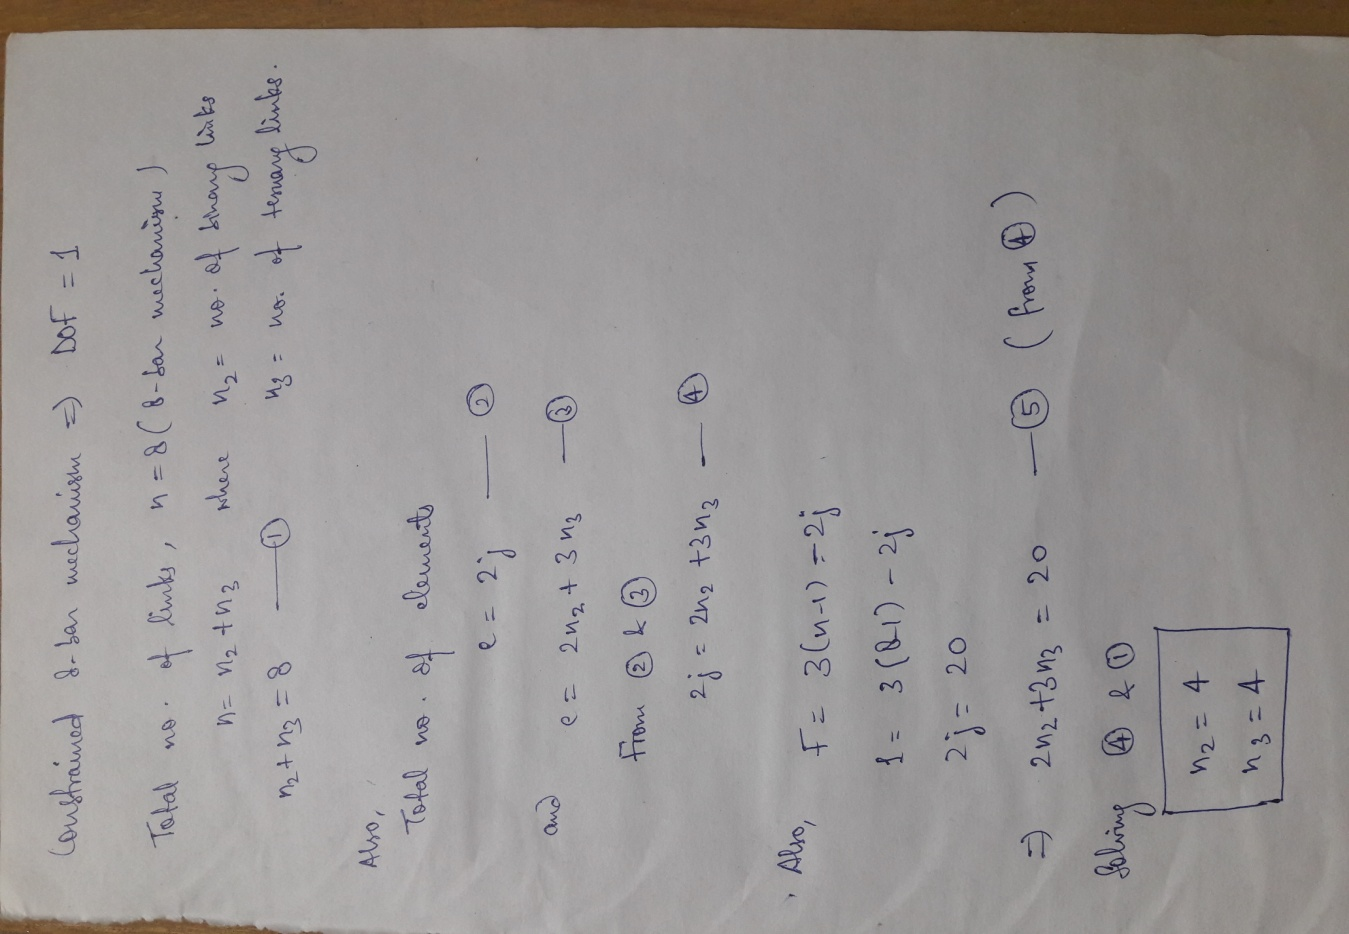 Constrained 8-bar mechanism => DOF = 1
Total no. of links, n = 8 ( 8-bar mechanism )
n = n₂ + n₃ where n₂ = no. of binary links
n₂ + n₃ = 8 — ① n₃ = no. of ternary links.
Also,
Total no. of elements
e = 2j — ②
and e = 2n₂ + 3n₃ — ③
From ② & ③
2j = 2n₂ + 3n₃ — ④
Also, F = 3(n-1) - 2j
1 = 3(8-1) - 2j
2j = 20
=> 2n₂ + 3n₃ = 20 — ⑤ ( from ④ )
Solving ④ & ①
n₂ = 4
n₃ = 4